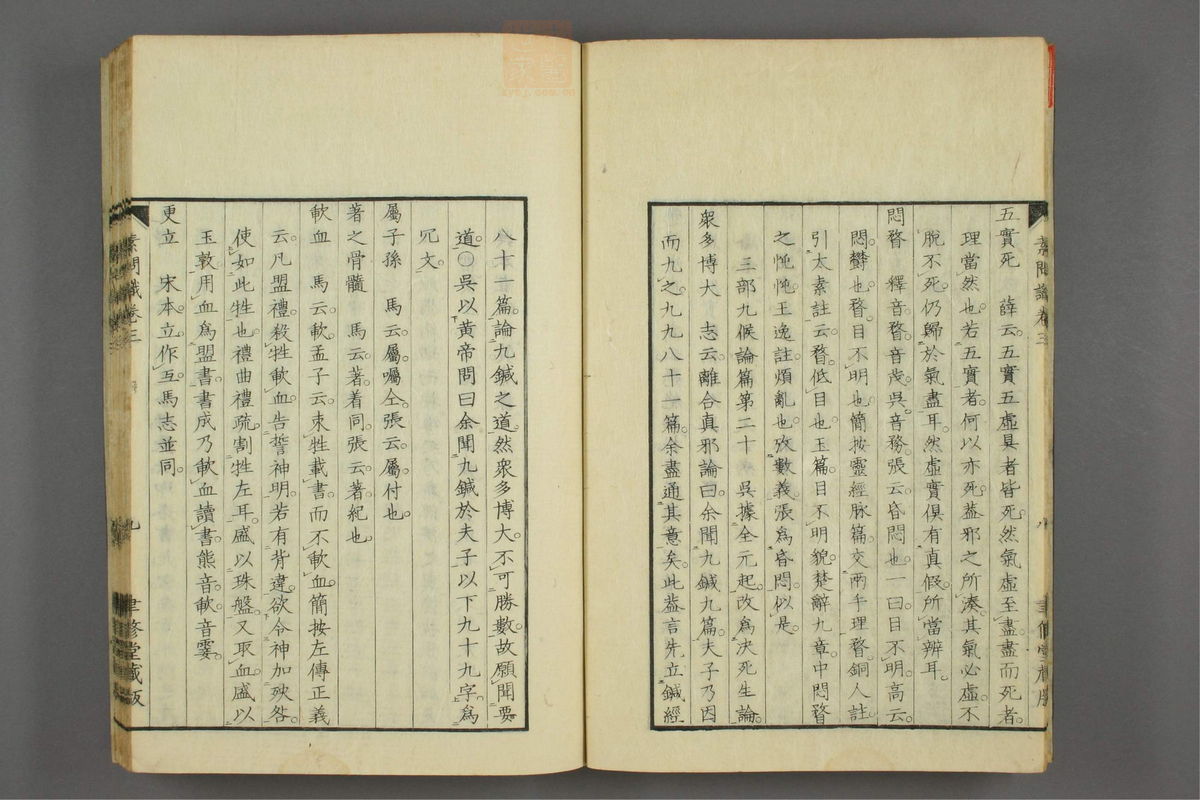 五實死　薛云五實五虛具者皆死然氣虛至盡盡而死者
理當然也若五實者何以亦死蓋邪之所湊其氣必虛不
脫不死仍歸於氣盡耳然虛實俱有真假所當辨耳
悶瞀　釋音瞀音茂吳音務張云昏悶也一曰目不明高云
悶鬱也瞀目不明也簡按靈經脉篇交兩手理瞀銅人註
引太素註云瞀低目也玉篇目不明貌楚辭九章中悶瞀
之忳忳王逸註煩亂也攷數義張為昏悶似是
三部九候論篇第二十　吳據全元起改為決死生論
眾多博大　志云離合真邪論曰余聞九鍼九篇夫子乃因
而九之九九八十一篇余盡通其意矣此蓋言先立鍼經
八十一篇論九鍼之道然眾多博大不可勝數故願聞要
道〇吳以黃帝問曰余聞九鍼於夫子以下九十九字為
冗文
屬子孫　馬云屬囑仝張云屬付也
著之骨髓　馬云著着同張云著紀也
歃血　馬云歃孟子云束牲載書而不歃血簡按左傳正義
云凡盟禮殺牲歃血告誓神明若有背違欲令神加殃咎
使如此牲也禮曲禮疏割牲左耳盛以珠盤又取血盛以
玉敦用血為盟書書成乃歃血讀書熊音歃音霎
更立　宋本立作互馬志並同
素問識卷三　九　聿修堂藏版